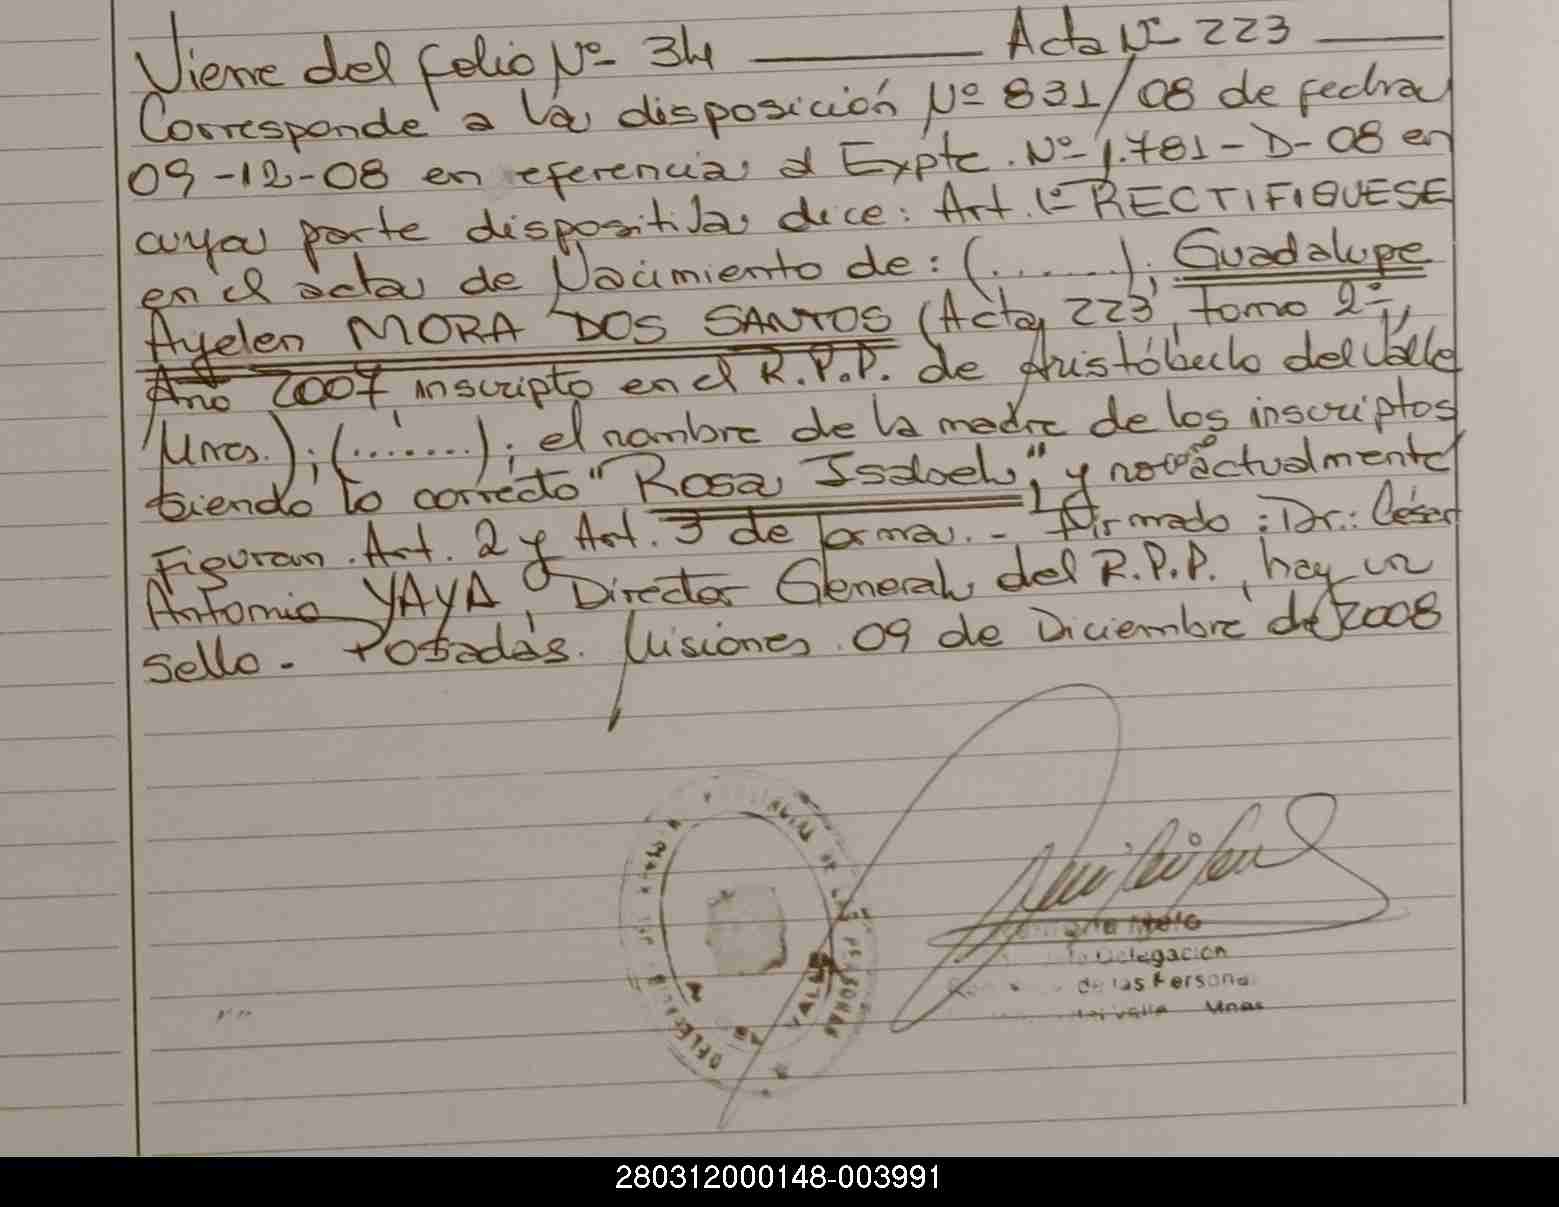 Viene del folio Nº 34 ——— Acta Nº 223 ———
Corresponde a la disposición Nº 831/08 de fecha
09-12-08 en referencia al Expte. Nº 1.781-D-08 en
cuya parte dispositiva dice: Art. 1º RECTIFIQUESE
en el acta de Nacimiento de: (.......); Guadalupe
Ayelen MORA DOS SANTOS (Acta 223, tomo 2º,
Año 2007 inscripto en el R.P.P. de Aristóbulo del Valle
Mnes.); (.......); el nombre de la madre de los inscriptos
siendo lo correcto "Rosa Isabel" y no como actualmente
Figuran. Art. 2 y Art. 3 de forma. - Firmado: Dr.: César
Antonio YAYA, Director General del R.P.P., hay un
sello. - Posadas. Misiones 09 de Diciembre de 2008
DE LAS PERSONAS
VALLE
Delegación
de las Persona
del Valle Mnes
280312000148-003991